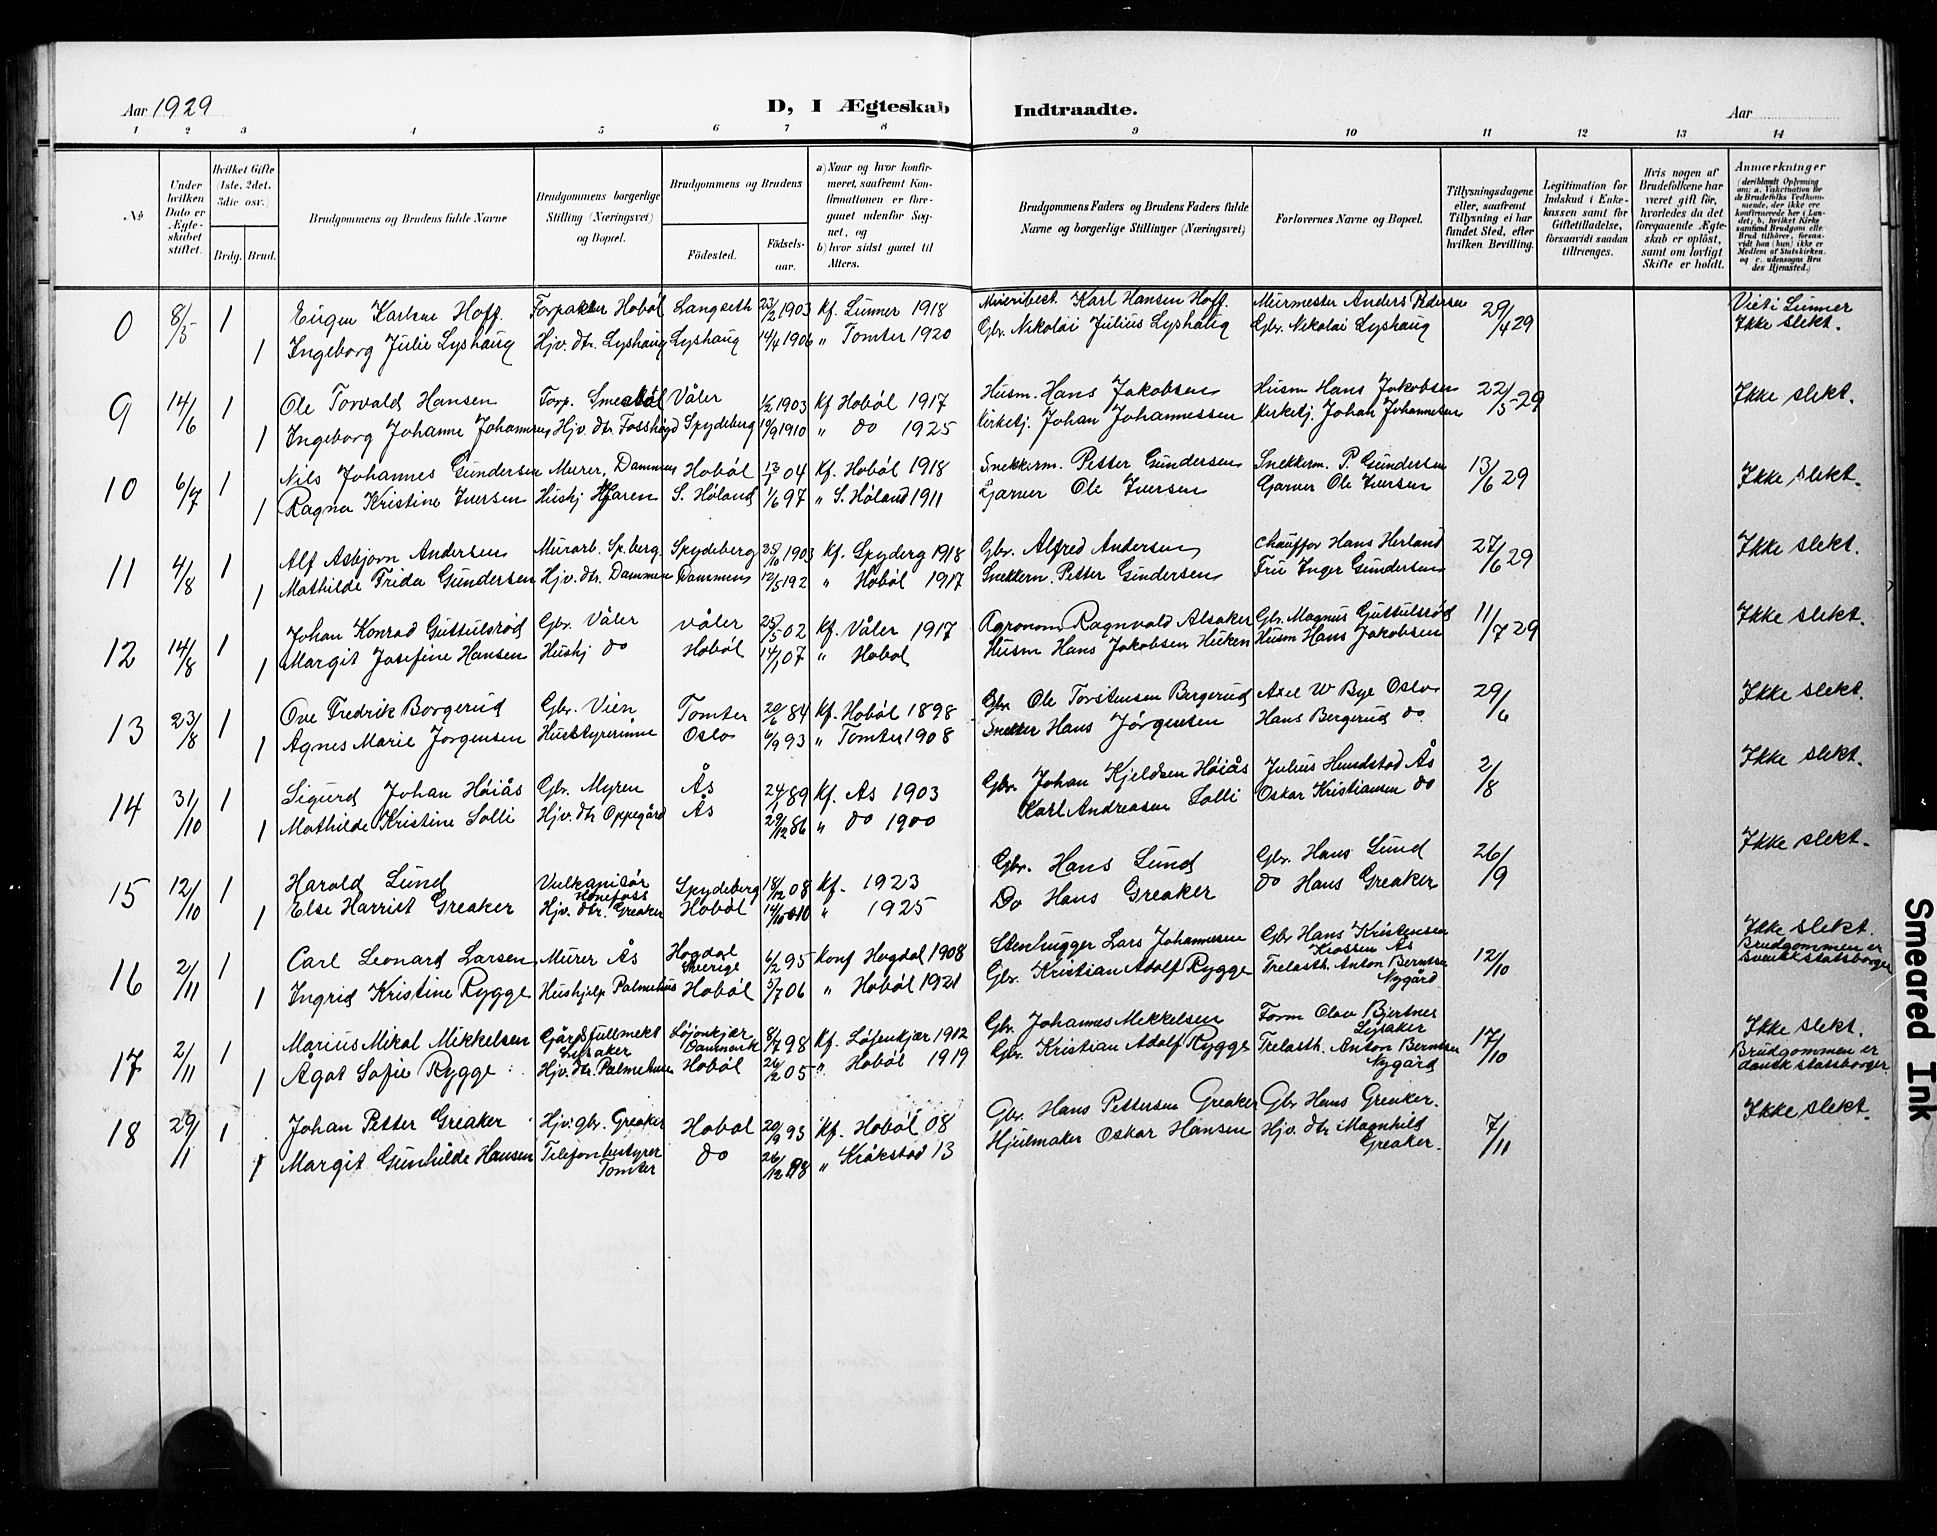 Aar 1929
D, I Ægteskab Indtraadte.
Aar
1 2 3 4 5 6 7 8 9 10 11 12 13 14
№
Under hvilken Dato er Ægteskabet stiftet.
Hvilket Gifte (1ste, 2det, 3die osv.)
Brdg. Brud.
Brudgommens og Brudens fulde Navne
Brudgommens borgerlige Stilling (Næringsvei) og Bopæl.
Brudgommens og Brudens
Fødested.
Fødselsaar.
a) Naar og hvor konfirmeret, saafremt Konfirmationen er foregaaet udenfor Sognet, og
b) hvor sidst gaaet til Alters.
Brudgommens Faders og Brudens Faders fulde Navne og borgerlige Stillinger (Næringsvei)
Forlovernes Navne og Bopæl.
Tillysningsdagene eller, saafremt Tillysning ei har fundet Sted, efter hvilken Bevilling.
Legitimation for Indskud i Enkekassen samt for Giftetilladelse, forsaavidt saadan tiltrænges.
Hvis nogen af Brudefolkene har været gift før, hvorledes da det foregaaende Ægteskab er opløst, samt om lovligt Skifte er holdt.
Anmærkninger
(deriblandt Oplysning om: a. Vaccination for de Brudefolks Vedkommende, der ikke ere konfirmerede her i Landet; b. hvilket Kirkesamfund Brudgom eller Brud tilhører, forsaavidt han (hun) ikke er Medlem af Statskirken, og c. udensogns Brudes Hjemsted.)
0 8/5 1 Eugen Karlsen Hoff. Forpakter Hobøl Langseth 23/2 1903 Kf. Lunner 1918 Karl Hansen Hoff. Murmester Anders Pedersen 29/4 29 Viet i Lunner Ikke slekt.
1 Ingeborg Julie Lyshaug Hjv. dtr. Lyshaug Lyshaug 14/4 1906 " Tomter 1920 Gbr. Nikolai Julius Lyshaug Gbr. Nikolai Lyshaug
9 14/6 1 Ole Torvald Hansen Torp. Smesbøl Våler 1/2 1903 Kf Hobøl 1917 Husm. Hans Jakobsen Husm Hans Jakobsen 22/5 29 Ikke slekt.
1 Ingeborg Johanne Johannesen Hjv. dtr. Fosshøgd Spydeberg 19/9 1910 " do 1925 Kirketj. Johan Johannessen Kirketj. Johan Johannesen
10 6/7 1 Nils Johannes Gundersen Murer, Dammen Hobøl 13/1 04 Kf. Hobøl 1918 Snekkerm. Petter Gundersen Snekkerm. P. Gundersen 13/6 29 Ikke slekt.
1 Ragna Kristine Iversen Hushj Haren S. Høland 1/6 97 " S. Høland 1911 Garver Ole Iversen Garver Ole Iversen
11 4/8 1 Alf Asbjørn Andersen Murarb. Sp.berg. Spydeberg 25/10 1903 Kf. Spyderg 1918 Gbr. Alfred Andersen Chauffør Hans Herland 27/6 29 Ikke slekt.
1 Mathilde Frida Gundersen Hjv. dtr. Dammen Dammens 12/5 192 " Hobøl 1917 Snekkerm. Petter Gundersen Fru Inger Gundersen
12 14/8 1 Johan Konrad Guttulsrød Gbr. Våler Våler 25/5 02 Kf. Våler 1917 Agronom Ragnvald Alsaker Gbr. Magnus Guttulsrød 11/7 29 Ikke slekt.
1 Margit Josefine Hansen Hushj do Hobøl 14/1 07 " Hobøl Husm Hans Jakobsen Huken Husm Hans Jakobsen
13 23/8 1 Ove Fredrik Borgerud Gbr. Vien Tomter 20/6 84 Kf. Hobøl 1898 Gbr Ole Torstensen Bergerud Axel W Bye Oslo 29/6 Ikke slekt.
1 Agnes Marie Jørgensen Husstyrerinne Oslo 6/9 93 " Tomter 1908 Snekker Hans Jørgensen Hans Bergerud do.
14 31/10 1 Sigurd Johan Høiås Gbr. Myren Ås 24/1 89 Kf. Ås 1903 Gbr. Johan Kjeldsen Høiås Julius Hundstad Ås 2/8 Ikke slekt.
1 Mathilde Kristine Solli Hjv. dtr Oppegård Ås 29/12 86 " do 1900 Karl Andreasen Solli Oskar Kristiansen do
15 12/10 1 Harald Lund Vulkanisør Hønefoss Spydeberg 18/12 08 Kf. 1923 Gbr. Hans Lund Gbr. Hans Lund 26/9 Ikke slekt.
1 Else Harriet Greaker Hjv. dtr. Greaker Hobøl 14/10 10 " 1925 Do Hans Greaker do Hans Greaker
16 2/11 1 Carl Leonard Larsen Murer Ås Hogdal Sverige 6/2 95 Konf Hogdal 1908 Stenhugger Lars Johannesen Gbr Hans Kristensen Krossen Ås 12/10 Ikke slekt. Brudgommen er svensk statsborger
1 Ingrid Kristine Rygge Hushjelp Palmehus Hobøl 3/7 06 " Hobøl 1921 Gbr. Kristian Adolf Rygge Trelasth. Anton Berntsen Nygård
17 2/11 1 Marius Mikal Mikkelsen Gårdsfullmekt Lysaker Løjenkjær Danmark 8/7 98 Kf. Løjenkjær 1912 Gbr. Johannes Mikkelsen Form Olav Bjertnes Lysaker 17/10 Ikke slekt. Brudgommen er dansk statsborger
1 Ågot Sofie Rygge Hjv. dtr. Palmehusen Hobøl 26/2 05 " Hobøl 1919 Gbr. Kristian Adolf Rygge Trelasth. Anton Berntsen Nygård
18 29/11 1 Johan Petter Greaker Hjv. gbr. Greaker Hobøl 20/9 93 Kf. Hobøl 08 Gbr. Hans Pettersen Greaker Gbr Hans Greaker. 7/11 Ikke slekt.
1 Margit Gunhilde Hansen Telefonbestyrer Tomter do 26/12 98 " Kråkstad 13 Hjulmaker Oskar Hansen Hjv. dtr Magnhild Greaker.
Smeared Ink